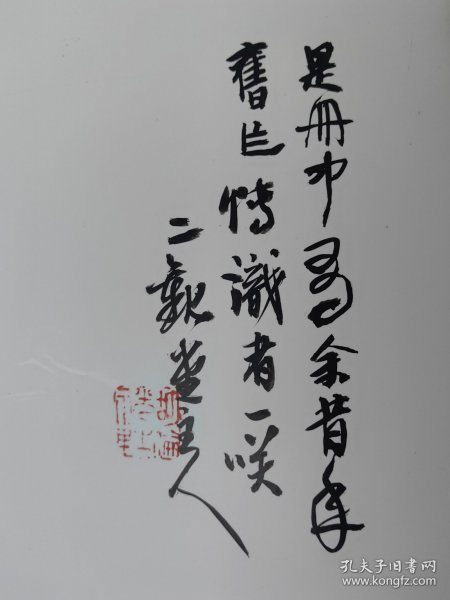 是冊中有余昔年
舊作愽識者一咲
二觀堂主人
孔夫子旧书网
www.kongfz.com